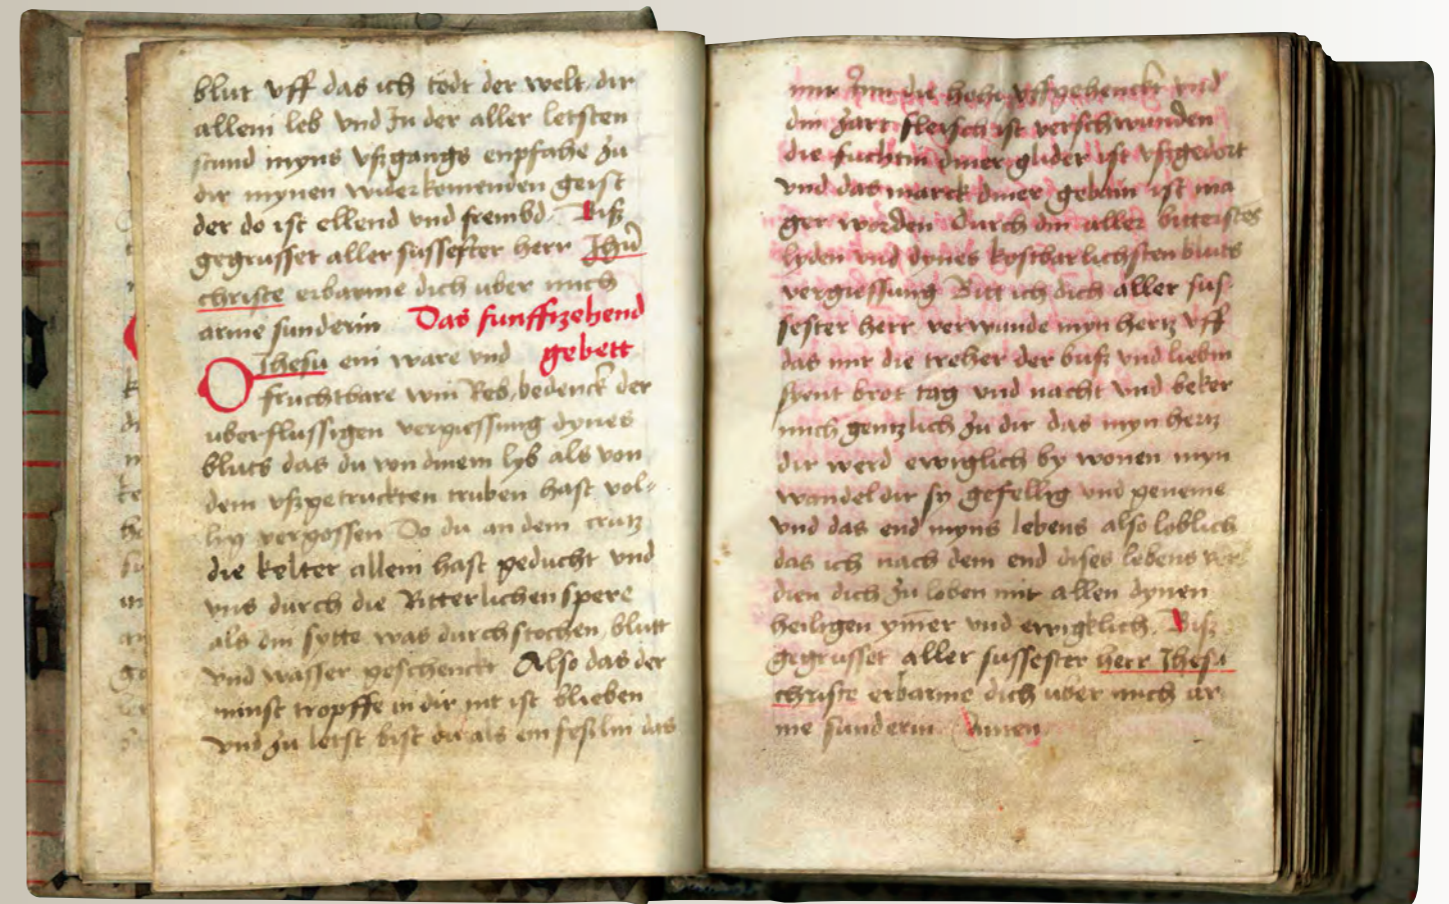 blut vff das ich todt der welt, dir
allein leb vnd Jn der aller letsten
stund myns vßgangs enpfahe zu
dir mynen widerkomenden geist
der do ist ellend vnd frembd. Biß
gegrusset aller sussester herr Jhu
christe erbarme dich uber mich
arme sunderin Das funffzehend
gebett
O Jhesu ein ware vnd
fruchtbare win Reb, bedenck der
uberflussigen vergiessung dynes
bluts das du von dinem lyb als von
dem vßgetruckten truben hast vol-
lig vergossen Do du an dem crutz
die kelter allein hast geducht vnd
vns durch die Ritterlichen spere
als din sytte was durchstochen, blutt
vnd wasser geschenckt Also das der
minst tropffe in dir nit ist blieben
vnd zu letst bist du als ein
die hohe vffgehenckt vnd
din zart fleisch ist verschwunden
die fuchtin diner glider ist vßgedort
vnd das marck diner gebain ist ma
ger worden Durch din aller bitterstes
lyden vnd dynes kostbarlichsten bluts
vergiessung Bitt ich dich aller sus-
sester herr verwunde myn hertz vff
das mir die treher der buß vnd liebin
syent brot tag vnd nacht vnd beker
mich gentzlich zu dir das myn hertz
dir werd ewiglich by wonen myn
wandel dir sy gefellig vnd geneme
vnd das end myns lebens also loblich
das ich nach dem end dises lebens ver
dien dich zu loben mit allen dynen
heiligen ymer vnd ewigklich. Biß
gegrusset aller sussester herr Jhesu
christe erbarme dich uber mich ar
me sunderin Amen